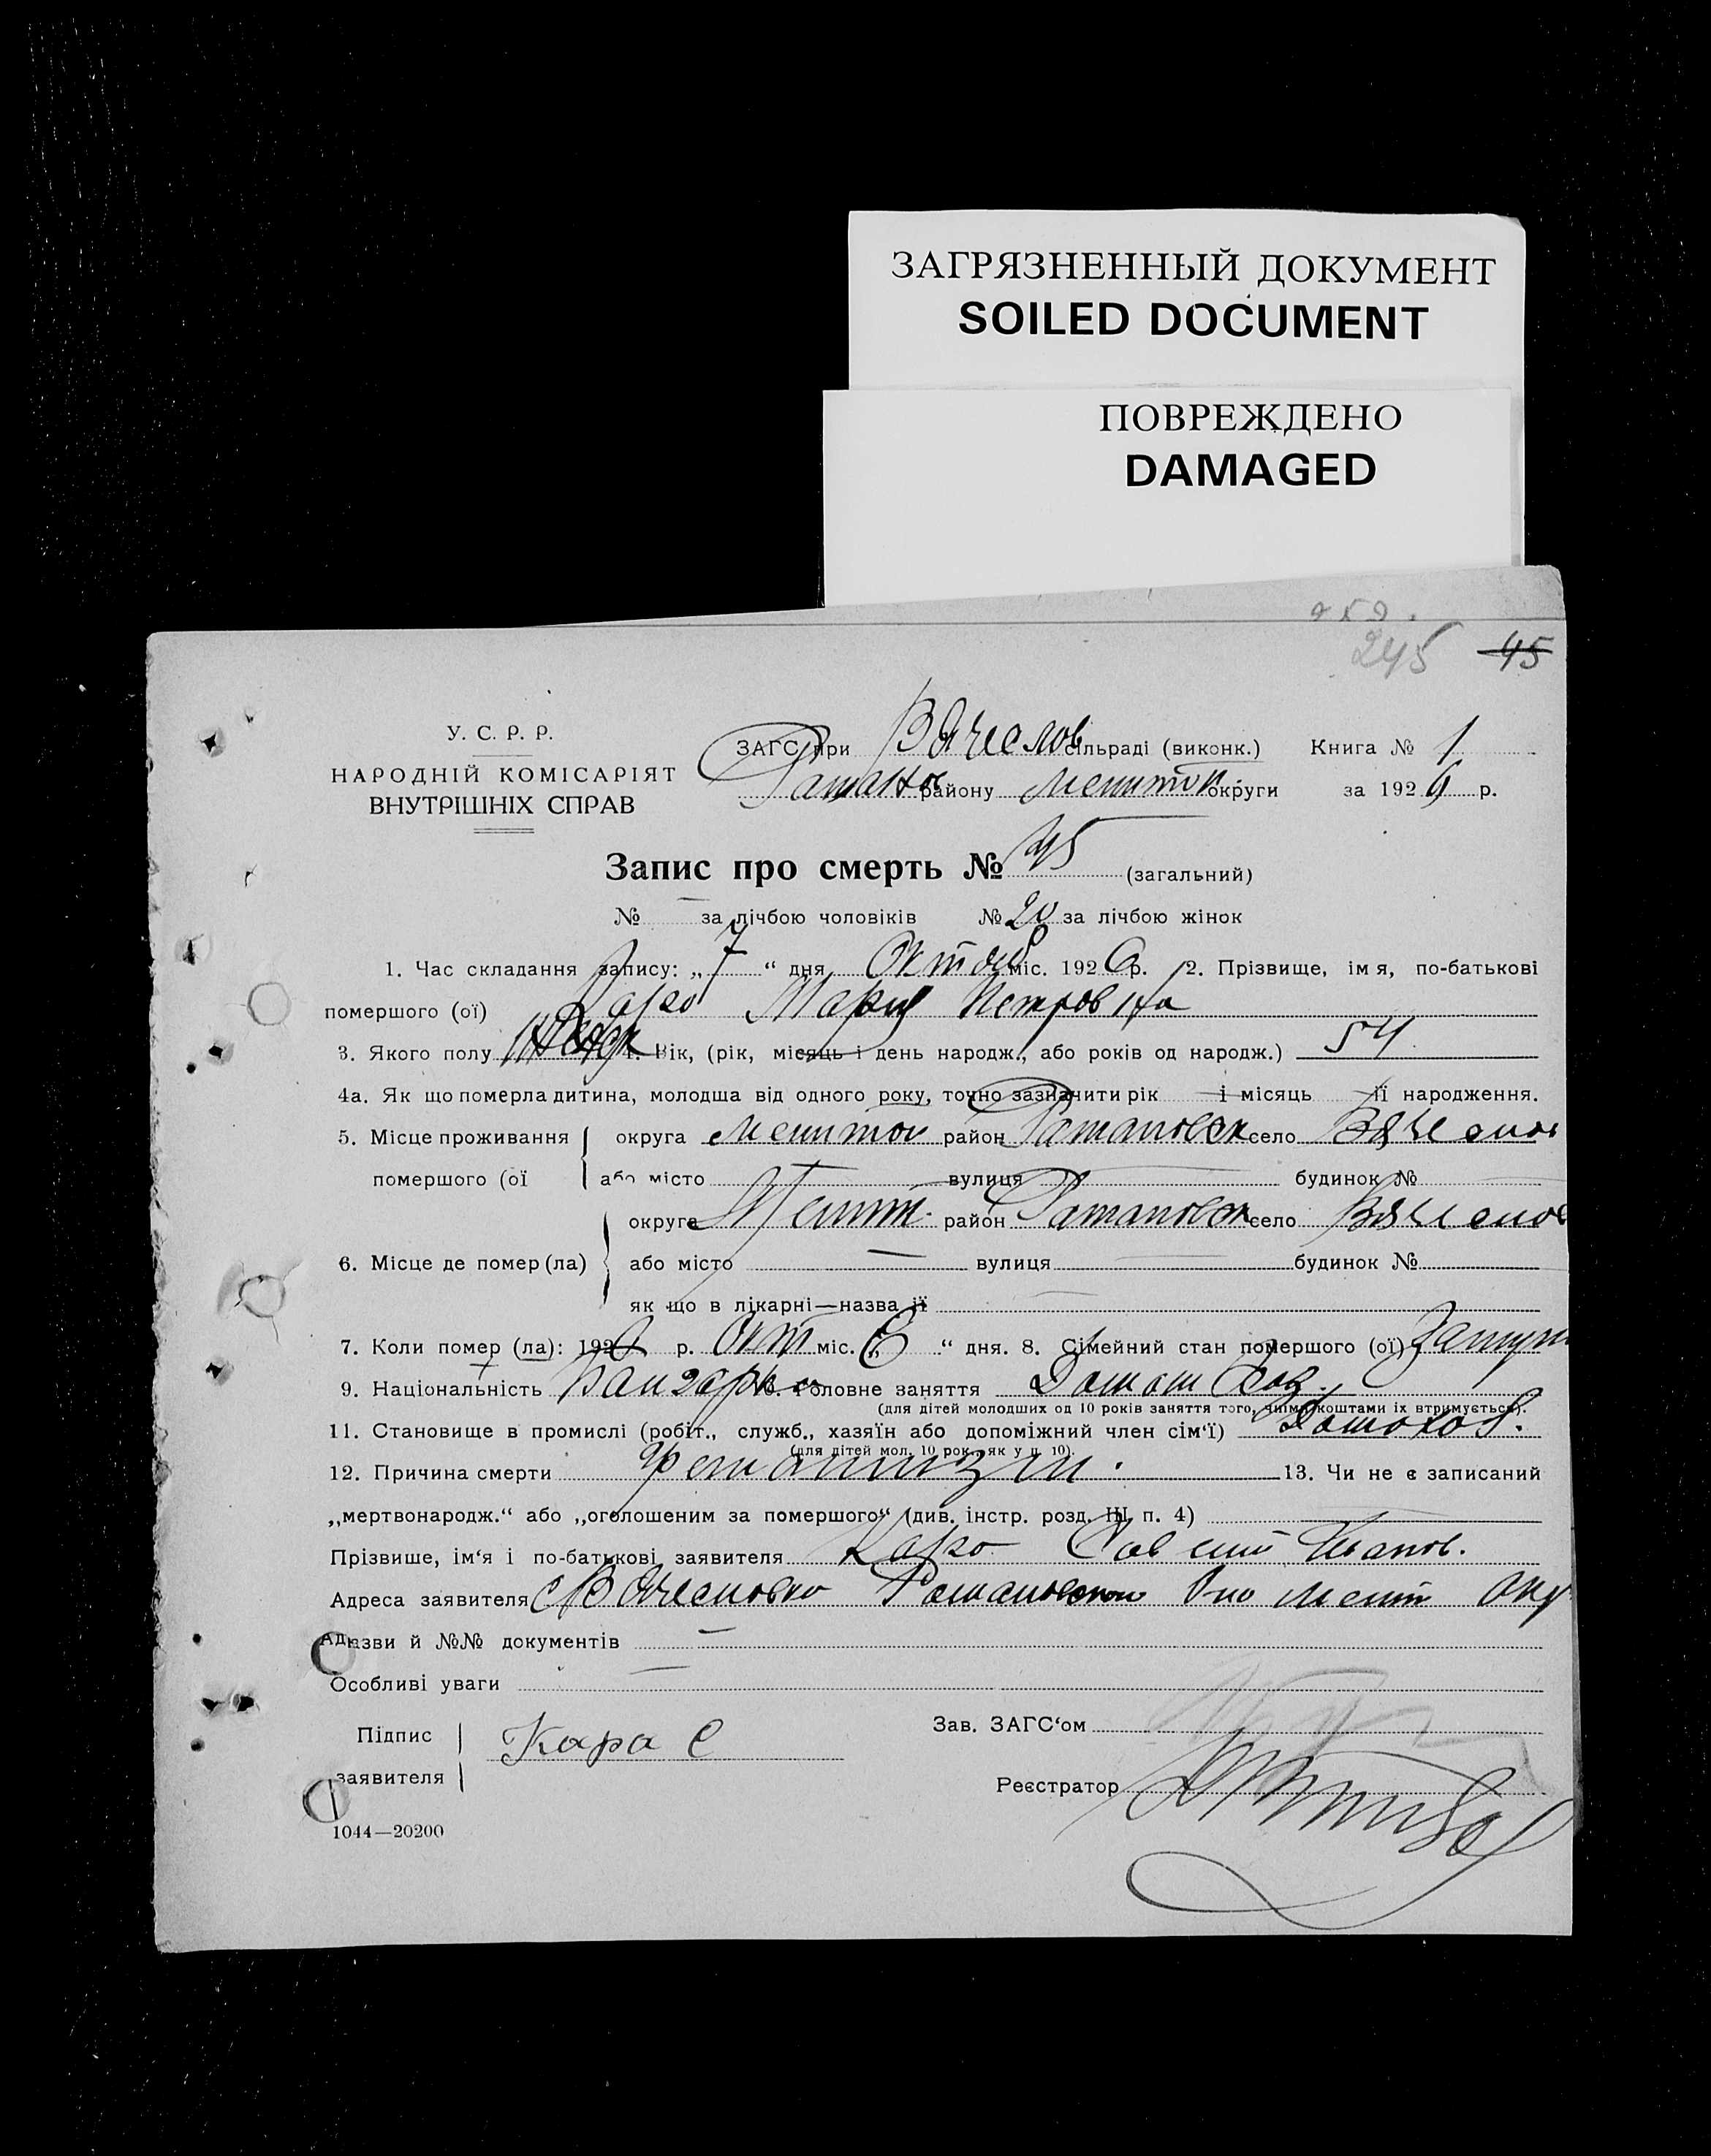 ЗАГРЯЗНЕННЫЙ ДОКУМЕНТ
SOILED DOCUMENT
ПОВРЕЖДЕНО
DAMAGED
245 45
У. С. Р. Р.
НАРОДНІЙ КОМІСАРІЯТ
ВНУТРІШНІХ СПРАВ
ЗАГС при Вячеслов сільраді (виконк.) Книга № 1
району Мелитоп. округи за 1926 р.
Запис про смерть № 45 (загальний)
№ — за лічбою чоловіків № 20 за лічбою жінок
1. Час складання запису: „ 7 “ дня Октяб міс. 1926 р. 2. Прізвище, імя, по-батькові
помершого (ої) Каро Мария Петровна
3. Якого полу 4. Вік, (рік, місяць і день народж., або років од народж.) 54
4а. Як що померла дитина, молодша від одного року, точно зазначити рік — і місяць — її народження.
5. Місце проживання округа Мелитоп район Романовск село Вячеслов
помершого (ої або місто вулиця будинок №
округа Мелит. район Романовск село Вячеслов
6. Місце де помер (ла) або місто — вулиця — будинок №
як що в лікарні—назва її —
7. Коли помер (ла): 1926 р. Окт міс. „ 6 “ дня. 8. Сімейний стан помершого (ої) Замуж
9. Національність Болгарк 10. Головне заняття Домаш Хоз.
(для дітей молодших од 10 років заняття того, чиїми коштами їх втримується).
11. Становище в промислі (робіт., служб., хазяїн або допоміжний член сім'ї) Домохоз.
(для дітей мол. 10 рок., як у п. 10).
12. Причина смерти 13. Чи не є записаний
„мертвонародж.“ або „оголошеним за помершого“ (див. інстр. розд. III п. 4) —
Прізвише, ім'я і по-батькові заявителя Каро Савелий Иванов.
Адреса заявителя с Вячеславка Романовского Р-но Мелит Окр
Назви й №№ документів —
Особливі уваги —
Підпис
заявителя
Кара С
Зав. ЗАГС'ом
Реєстратор
1044—20200